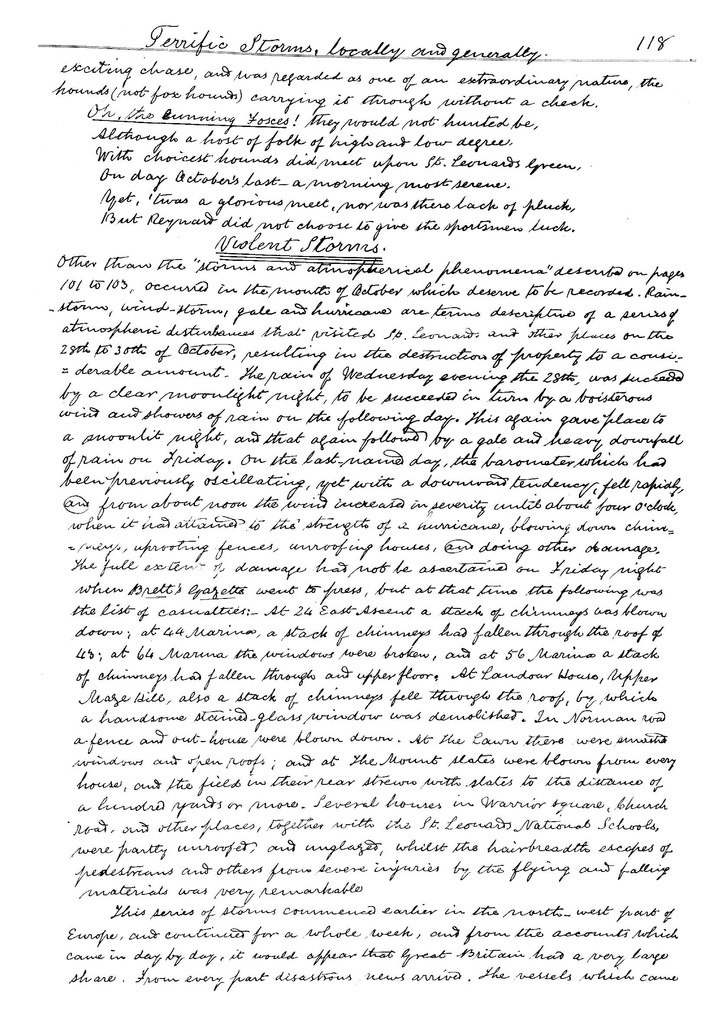 Terrific Storms, locally and generally. 118
exciting chase, and was regarded as one of an extraordinary nature, the
hounds (not fox hounds) carrying it through without a check.
Oh, the cunning Foxes! they would not hunted be,
Although a host of folk of high and low degree,
With choicest hounds did meet upon St. Leonards Green,
On day October's last – a morning most serene.
Yet, 'twas a glorious meet, nor was there lack of pluck,
But Reynard did not choose to give the sportsmen luck.
Violent Storms.
Other than the "storms and atmospherical phenomena" described on pages
101 to 103, occurred in the month of October which deserve to be recorded. Rain-
-storm, wind-storm, gale and hurricane are terms descriptive of a series of
atmospheric disturbances that visited St. Leonards and other places on the
28th to 30th of October, resulting in the destruction of property to a consi-
=derable amount. The rain of Wednesday evening the 28th, was succeeded
by a clear moonlight night, to be succeeded in turn by a boisterous
wind and showers of rain on the following day. This again gave place to
a moonlit night, and that again followed by a gale and heavy downfall
of rain on Friday. On the last-named day, the barometer, which had
been previously oscillating, yet with a downward tendency, fell rapidly,
and from about noon the wind increased in severity until about four o'clock,
when it had attained to the strength of a hurricane, blowing down chim=
=neys, uprooting fences, unroofing houses, and doing other damage.
The full extent of damage had not be ascertained on Friday night
when Brett's Gazette went to press, but at that time the following was
the list of casualties:- At 24 East Ascent a stack of chimneys was blown
down; at 44 Marina, a stack of chimneys had fallen through the roof of
43; at 64 Marina the windows were broken, and at 56 Marina a stack
of chimneys had fallen through and upper floor. At Landour House, Upper
Maze Hill, also a stack of chimneys fell through the roof, by which
a handsome stained-glass window was demolished. In Norman road
a fence and out-house were blown down. At the Lawn there were smashed
windows and open roofs; and at The Mount slates were blown from every
house, and the field in their rear strewn with slates to the distance of
a hundred yards or more. Several houses in Warrior square, Church
road, and other places, together with the St. Leonards National Schools,
were partly unroofed, and unglazed, whilst the hairbreadth escapes of
pedestrians and others from severe injuries by the flying and falling
materials was very remarkable
This series of storms commenced earlier in the north-west part of
Europe, and continued for a whole week, and from the accounts which
came in day by day, it would appear that Great Britain had a very large
share. From every part disastrous news arrived. The vessels which came